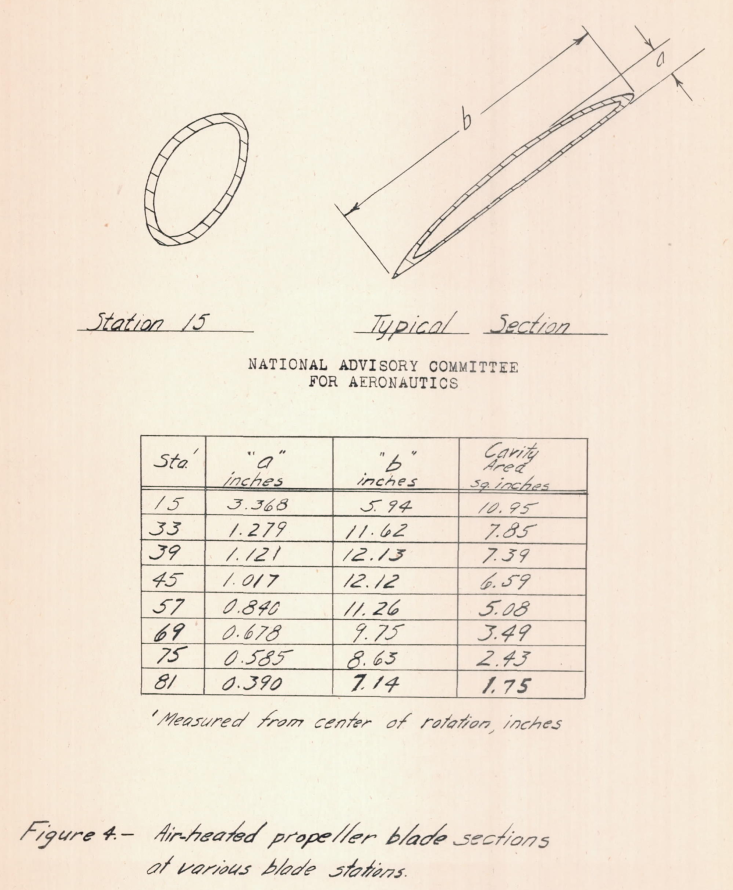 a
b
Station 15
Typical Section
NATIONAL ADVISORY COMMITTEE
FOR AERONAUTICS
Sta.' "a" inches "b" inches Cavity Area sq. inches
15 3.368 5.94 10.95
33 1.279 11.62 7.85
39 1.121 12.13 7.39
45 1.017 12.12 6.59
57 0.840 11.26 5.08
69 0.678 9.75 3.49
75 0.585 8.63 2.43
81 0.390 7.14 1.75
' Measured from center of rotation, inches
Figure 4.- Air-heated propeller blade sections
at various blade stations.